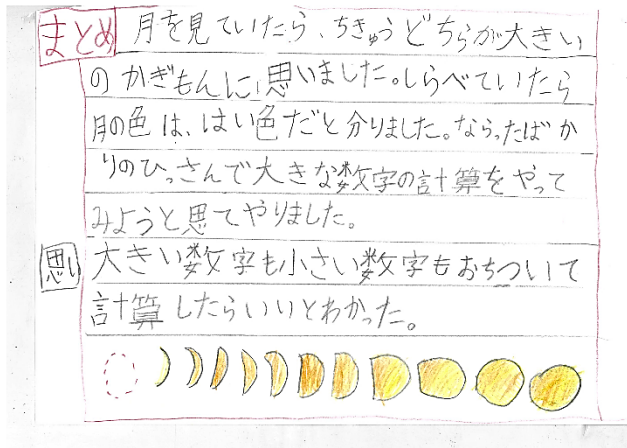 まとめ 月を見ていたら、ちきゅうどちらが大きい
のかぎもんに思いました。しらべていたら
月の色は、はい色だと分りました。ならったばか
りのひっさんで大きな数字の計算をやって
みようと思てやりました。
思い 大きい数字も小さい数字もおちついて
計算したらいいとわかった。